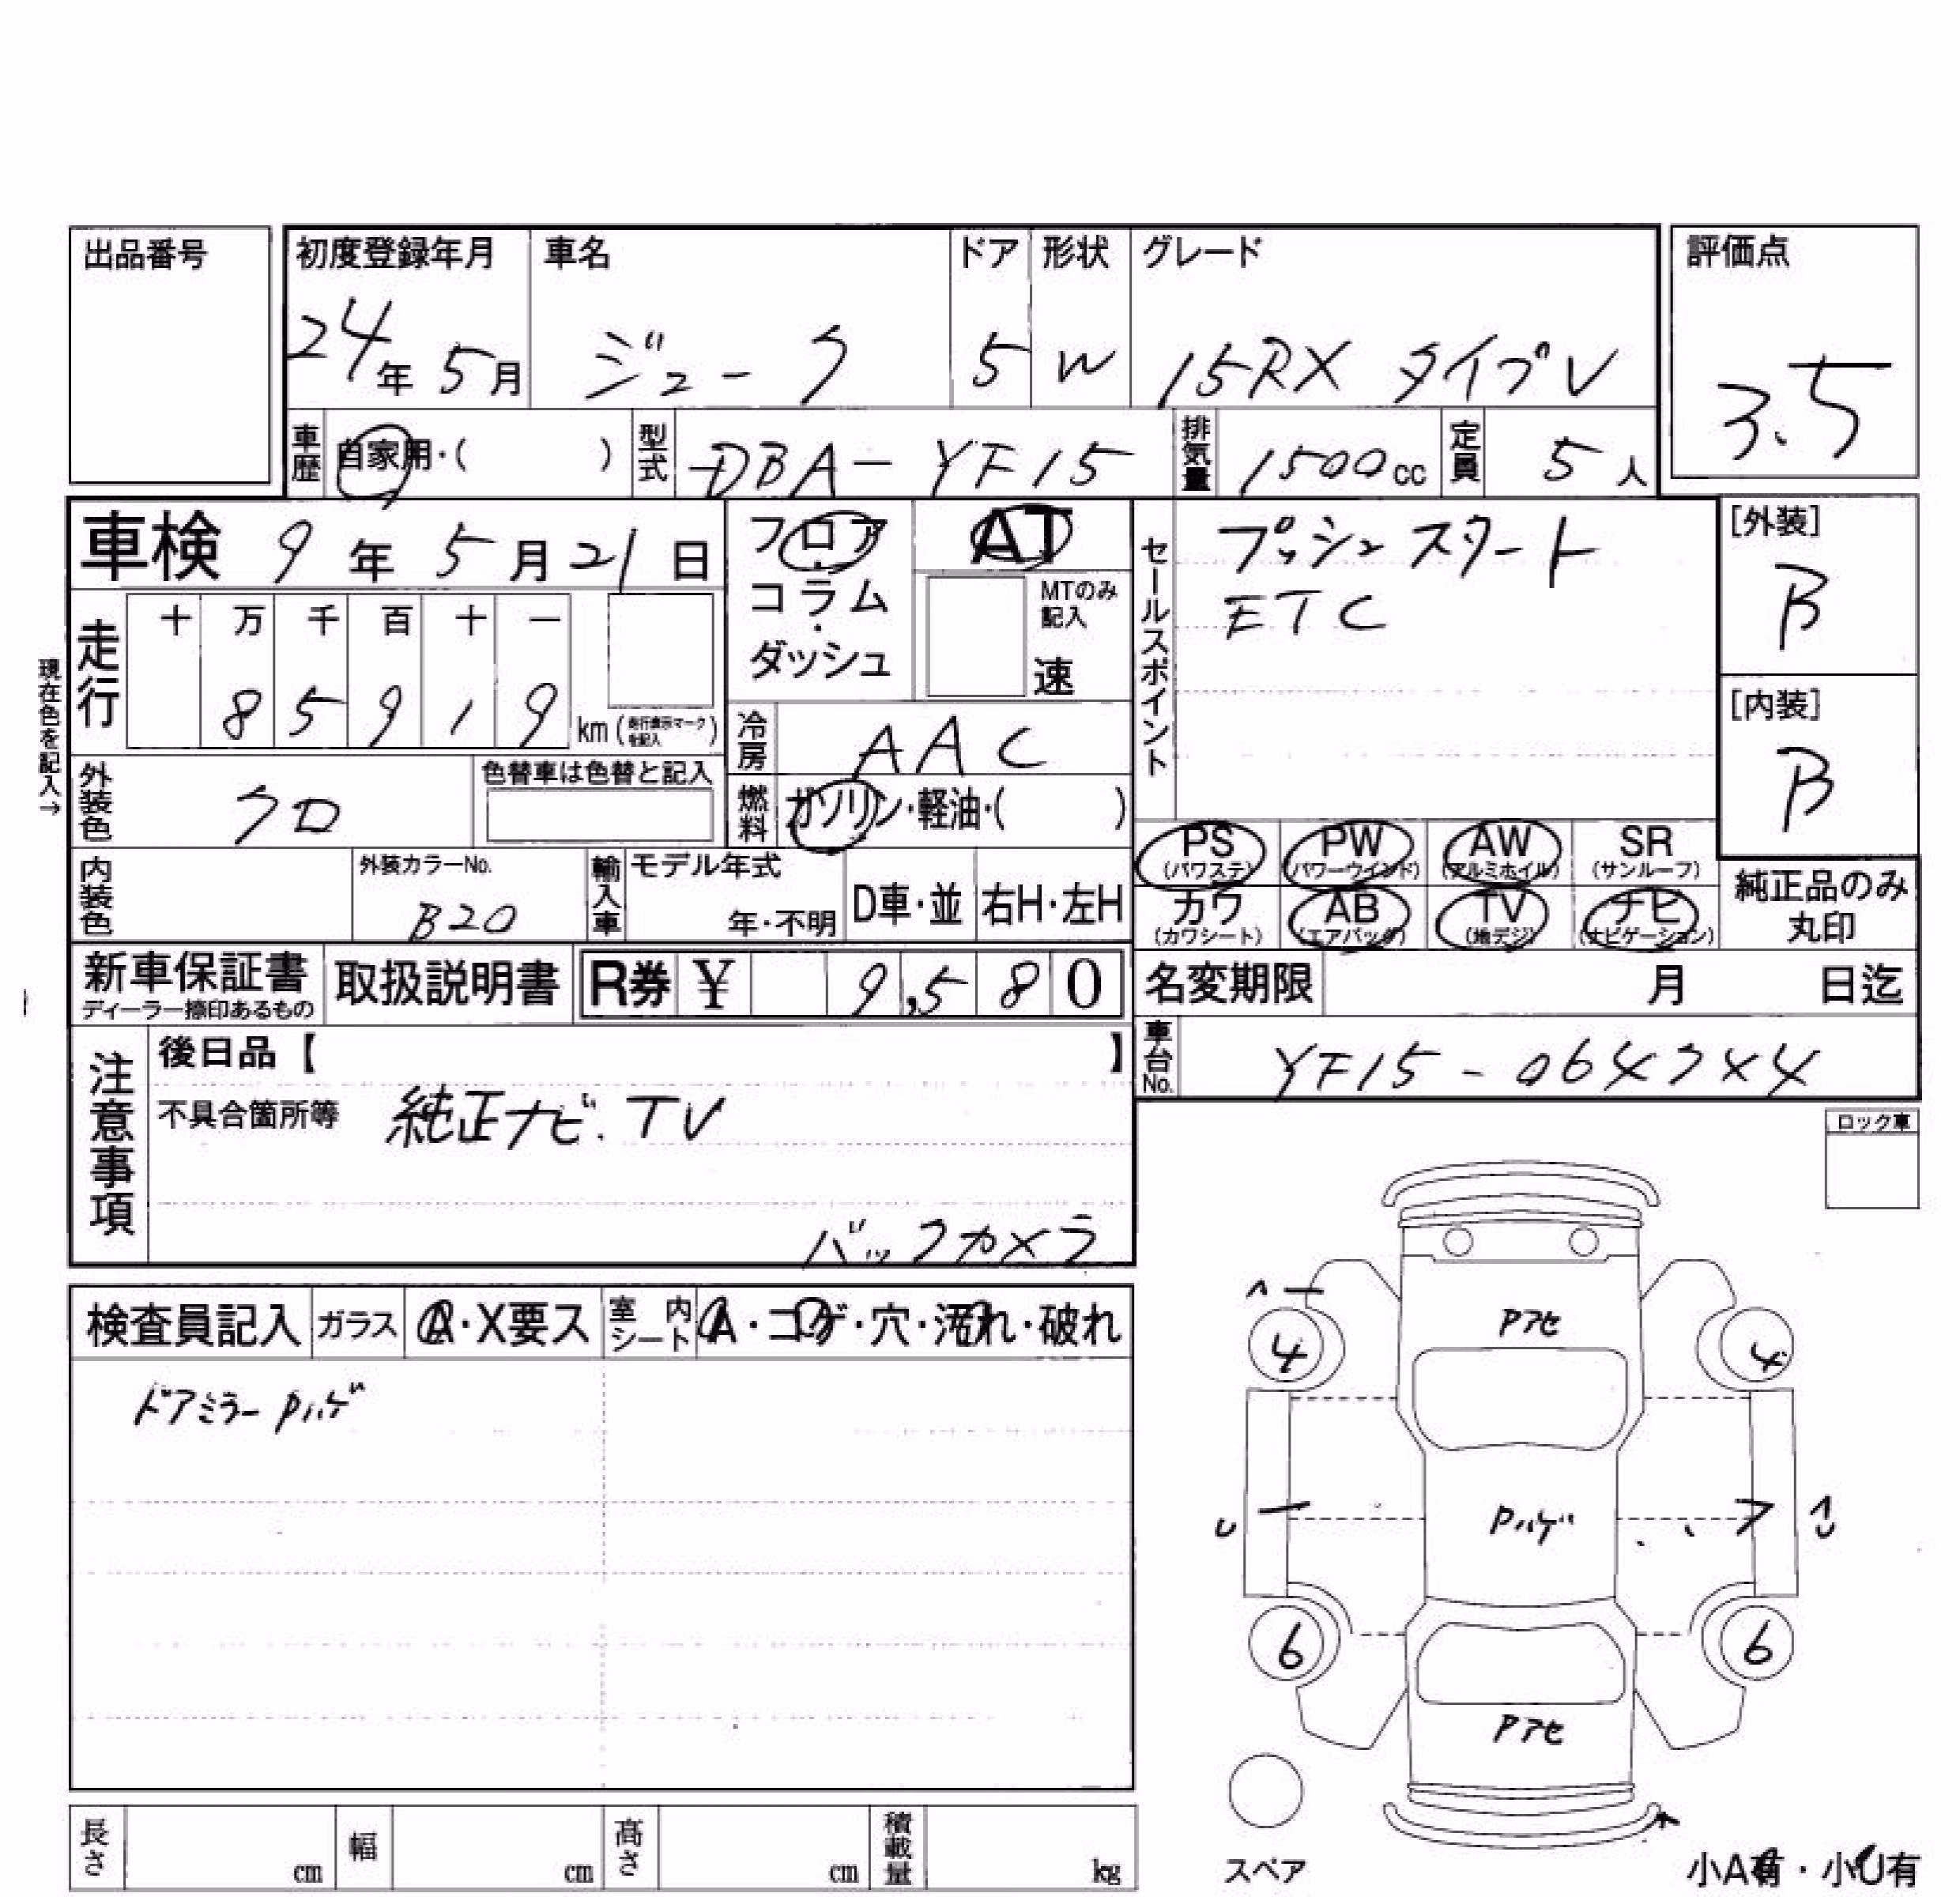 出品番号
初度登録年月 車名 ドア 形状 グレード 評価点
24年 5月 ジューク 5 W 15RX タイプV 3.5
車歴 自家用・( ) 型式 DBA-YF15 排気量 1500cc 定員 5人
車検 9年 5月 21日
フロア・コラム・ダッシュ
AT
MTのみ記入
速
セールスポイント
プッシュスタート
ETC
[外装]
B
[内装]
B
現在色を記入→
走行 十 万 千 百 十 一
8 5 9 1 9 km (走行表示マークを記入)
冷房 AAC
外装色 クロ 色替車は色替と記入
燃料 ガソリン・軽油・( )
PS (パワステ) PW (パワーウインド) AW (アルミホイル) SR (サンルーフ)
カワ (カワシート) AB (エアバッグ) TV (地デジ) ナビ (ナビゲーション)
純正品のみ丸印
内装色 外装カラーNo. B20 輸入車 モデル年式 年・不明 D車・並 右H・左H
新車保証書 ディーラー捺印あるもの 取扱説明書 R券 ¥ 9,580
名変期限 月 日迄
車台No. YF15-064744
注意事項
後日品【 】
不具合箇所等 純正ナビ.TV
バックカメラ
ロック車
検査員記入 ガラス A・X要ス 室内シート A・コゲ・穴・汚れ・破れ
ドアミラー Pハゲ
Pアセ
4 4
Pハゲ
6 6
Pアセ
スペア
小A有・小U有
長さ cm 幅 cm 高さ cm 積載量 kg